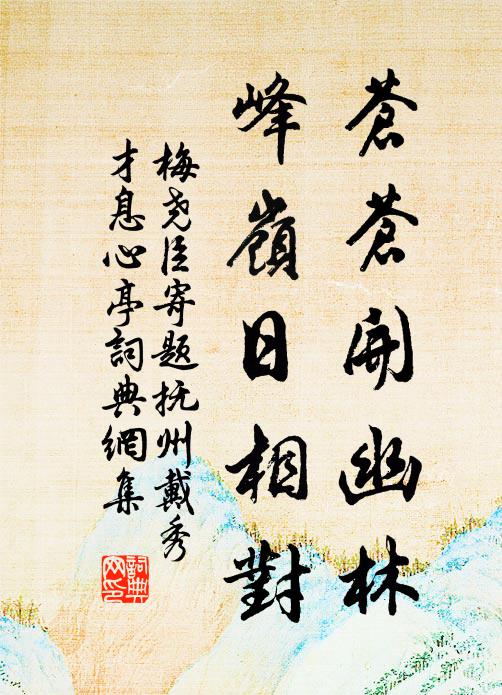 蒼蒼開幽林
峰嶺日相對
梅尧臣寄題抚州戴秀
才息心亭詞典網集
詞典网印